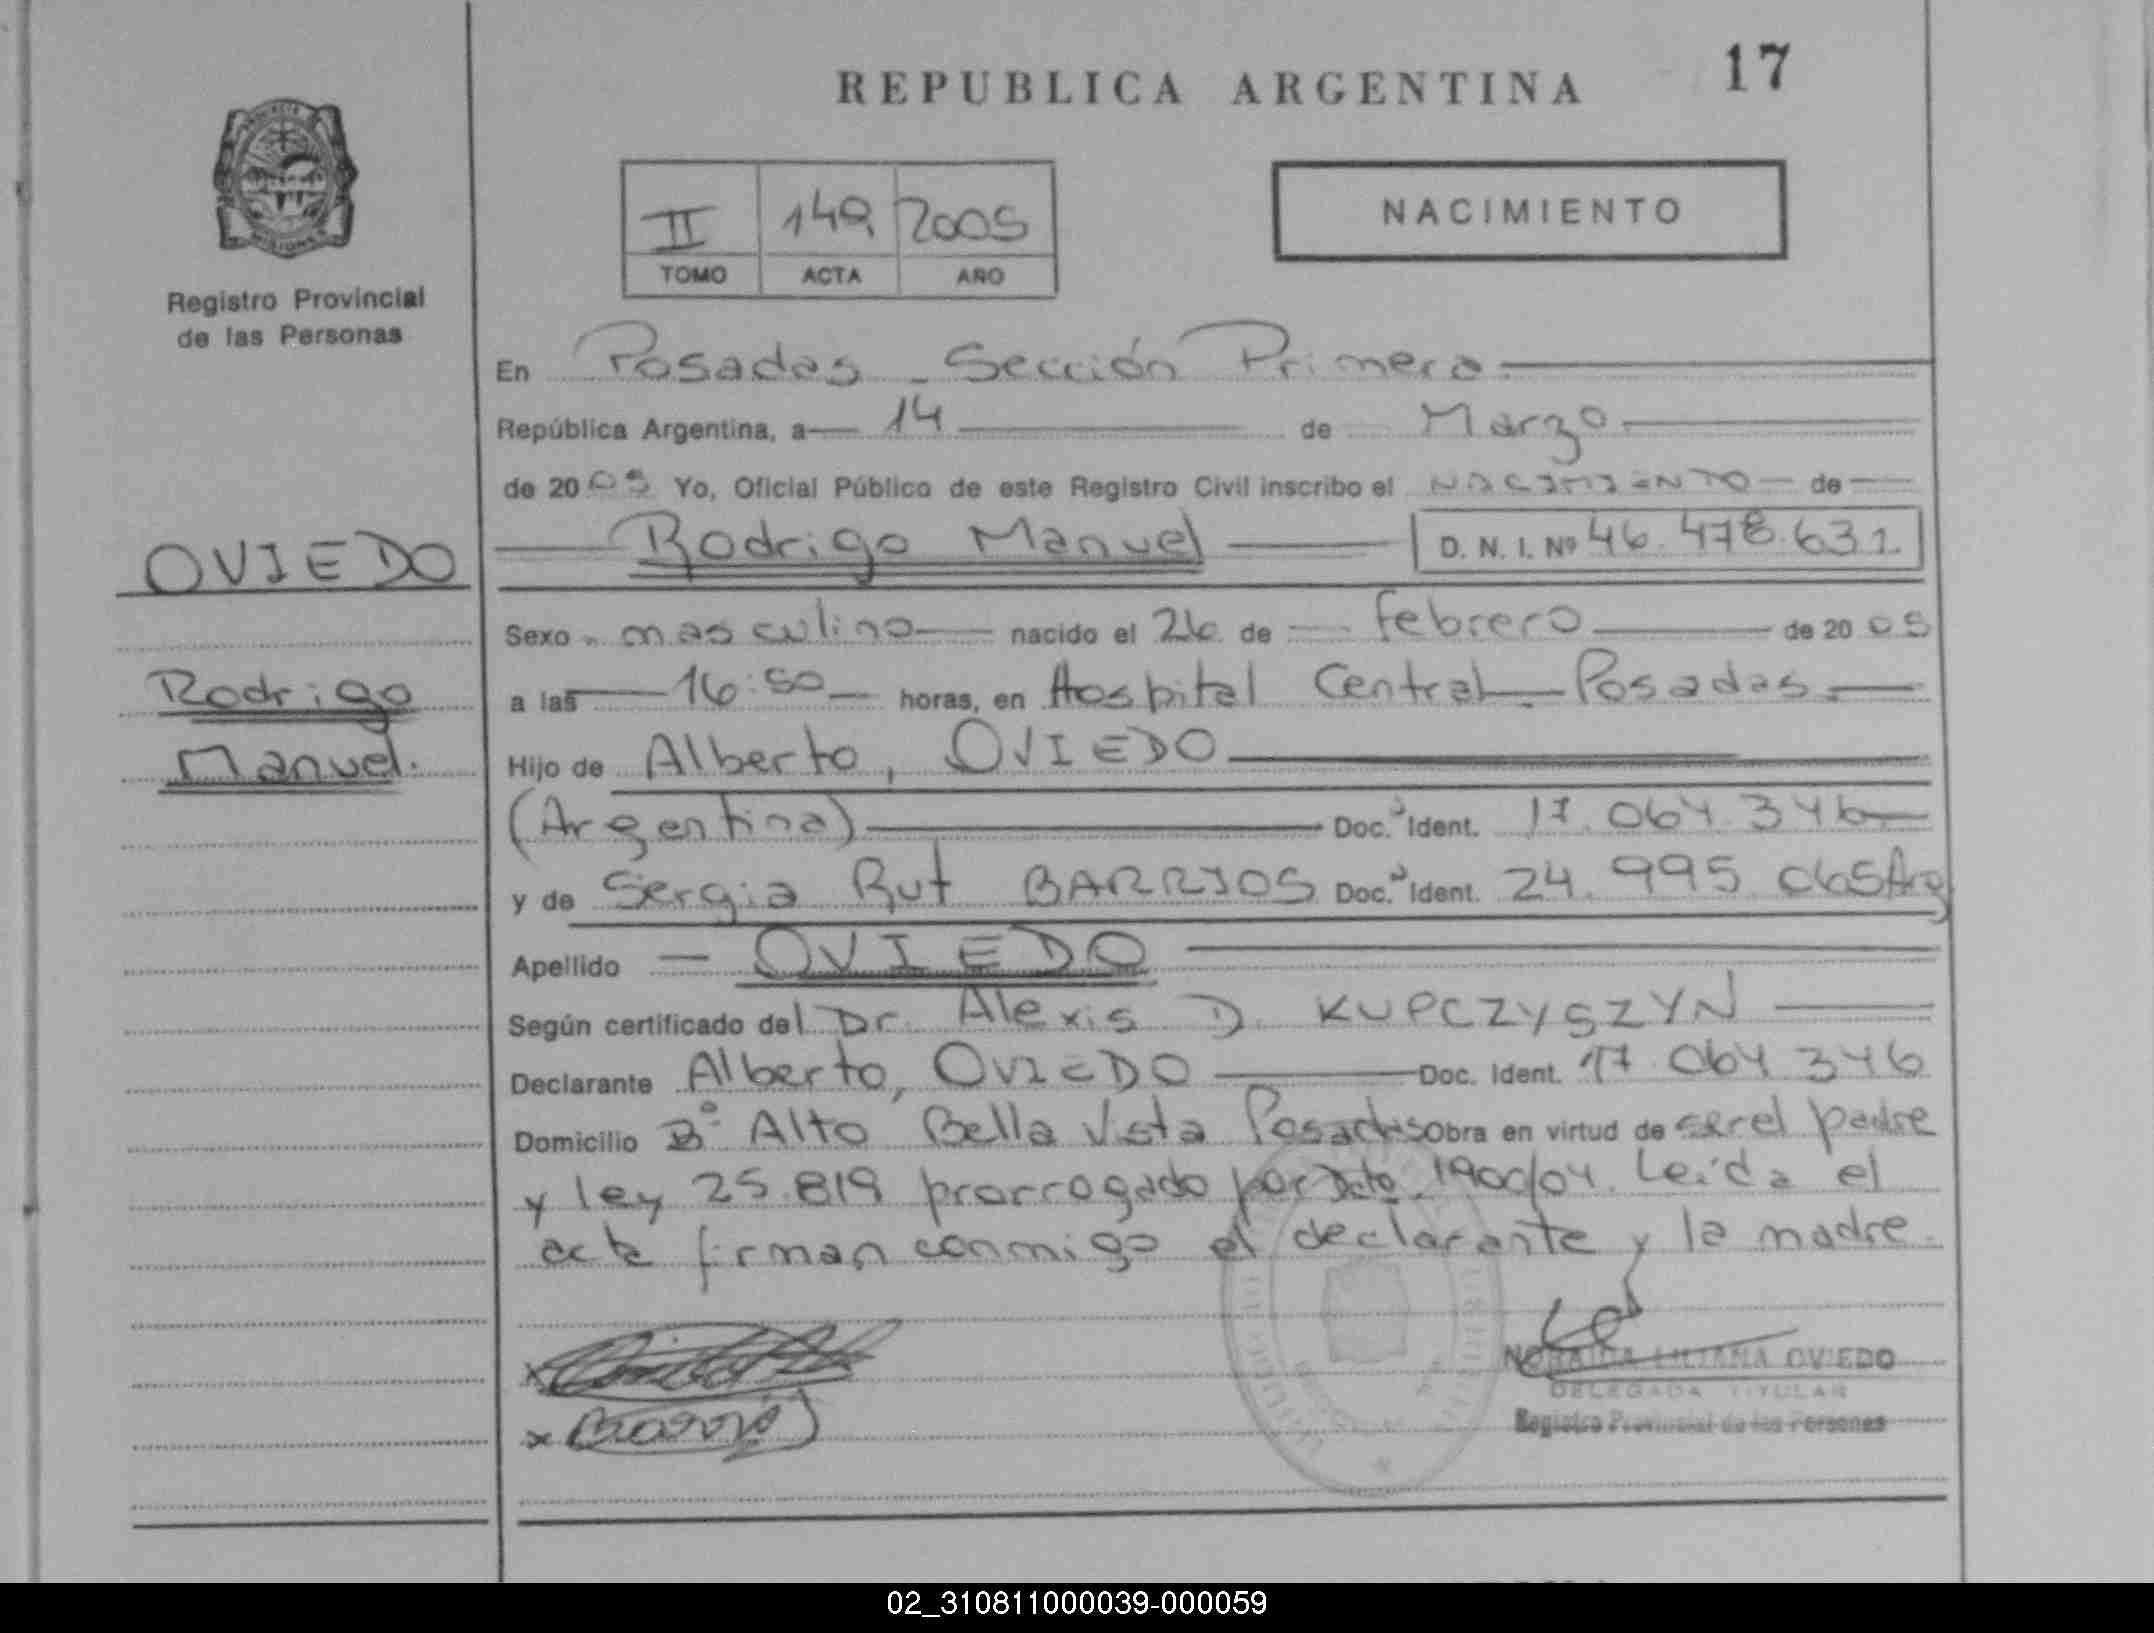 REPUBLICA ARGENTINA
17
Registro Provincial
de las Personas
II 149 2005
TOMO ACTA AÑO
NACIMIENTO
En Posadas - Sección Primera
República Argentina, a 14 de Marzo
de 2005 Yo, Oficial Público de este Registro Civil inscribo el NACIMIENTO de
OVIEDO
Rodrigo
Manuel.
Rodrigo Manuel D. N. I. Nº 46.478.631.
Sexo masculino nacido el 26 de febrero de 2005
a las 16:50 horas, en Hospital Central - Posadas.
Hijo de Alberto, OVIEDO
(Argentina) Doc. Ident. 17.064.346
y de Sergia Rut BARRIOS Doc. Ident. 24.995.065 Arg
Apellido OVIEDO
Según certificado del Dr. Alexis D. KUPCZYSZYN
Declarante Alberto, OVIEDO Doc. Ident. 17.064.346
Domicilio Bº Alto Bella Vista Posadas Obra en virtud de ser el padre
y ley 25.819 prorrogado por Dcto. 1900/04. Leída el
acta firman conmigo el declarante y la madre.
LILIANA OVIEDO
DELEGADA TITULAR
Registro Provincial de las Personas
02_310811000039-000059